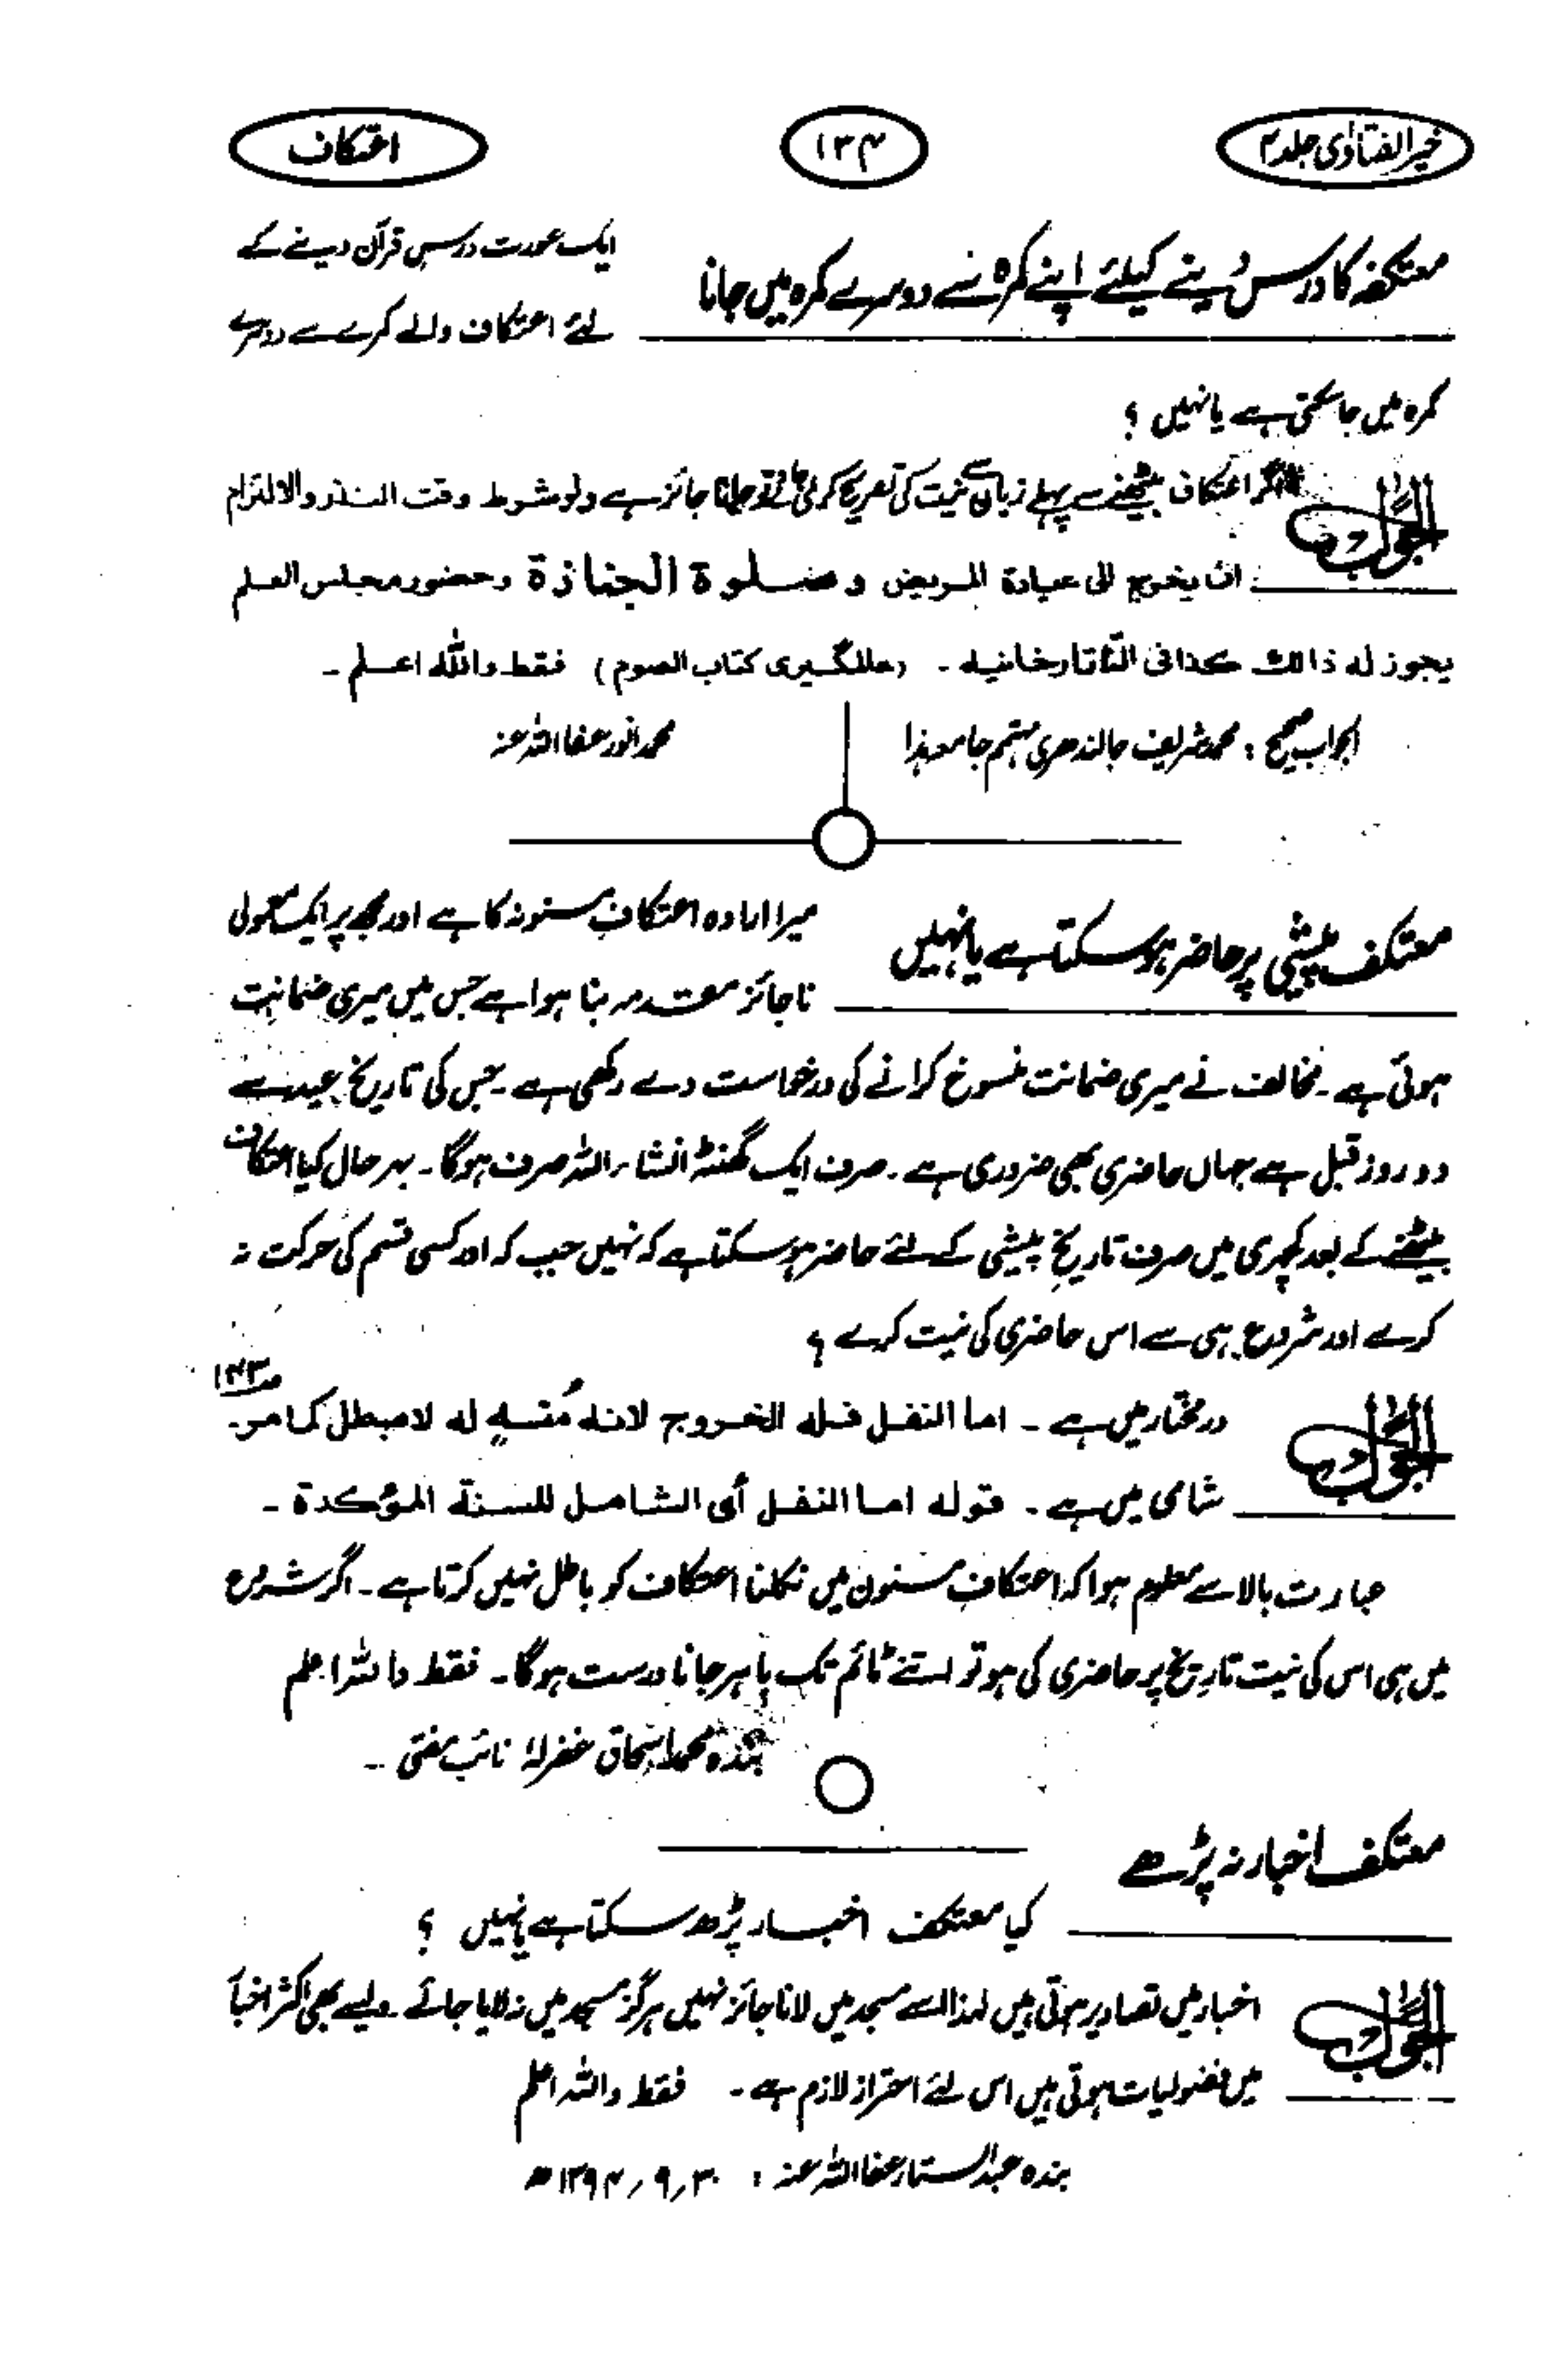 خیر الفتاوی جلد ۴
۱۳۴
اعتکاف
معتکفہ کا درس دینے کیلئے اپنے کمرہ سے دوسرے کمرہ میں جانا
ایک عورت درس قرآن دینے کے
لئے اعتکاف والے کمرے سے دوسرے
کمرہ میں جا سکتی ہے یا نہیں ؟
الجواب
اگر اعتکاف بیٹھنے سے پہلے زبان سے نیت کی تصریح کر لی جائے تو جانا جائز ہے ولو شرط وقت النذر والالتزام
ان یخرج الی عیادة المریض وصلوة الجنازة وحضور مجلس العلم
یجوز له ذالك كذا فی التاتارخانیه ۔ (عالمگیری کتاب الصوم) فقط واللہ اعلم ۔
الجواب صحیح : محمد شریف جالندھری مہتمم جامعہ ہذا
محمد انور عفا اللہ عنہ
معتکف پیشی پر حاضر ہو سکتا ہے یا نہیں
میرا ارادہ اعتکاف مسنونہ کا ہے اور مجھ پر ایک معمولی
ناجائز مقدمہ بنا ہوا ہے جس میں میری ضمانت
ہوئی ہے ۔ مخالف نے میری ضمانت منسوخ کرانے کی درخواست دے رکھی ہے ۔ جس کی تاریخ عید سے
دو روز قبل ہے جہاں حاضری بھی ضروری ہے ۔ صرف ایک گھنٹہ انشاء اللہ صرف ہوگا ۔ بہر حال کیا اعتکاف
بیٹھنے کے بعد کچہری میں صرف تاریخ پیشی کے لئے حاضر ہو سکتا ہے کہ نہیں جب کہ اور کسی قسم کی حرکت نہ
کرے اور شروع ہی سے اس حاضری کی نیت کرے ؟
الجواب
در مختار میں ہے ۔ اما النفل فله الخروج لانه مُنْهٍ له لا مبطل كما مر۔ ص۱۴۳
شامی میں ہے ۔ قوله اما النفل أی الشامل للسنة المؤکدة ۔
عبارت بالا سے معلوم ہوا کہ اعتکاف مسنون میں نکلنا اعتکاف کو باطل نہیں کرتا ہے ۔ اگر شروع
میں ہی اس کی نیت تاریخ پر حاضری کی ہو تو اتنے ٹائم تک باہر جانا درست ہوگا ۔ فقط واللہ اعلم
بندہ محمد اسحاق غفر لہٗ نائب مفتی ۔
معتکف اخبار نہ پڑھے
کیا معتکف اخبار پڑھ سکتا ہے یا نہیں ؟
الجواب
اخبار میں تصاویر ہوتی ہیں لہذا اسے مسجد میں لانا جائز نہیں ہرگز مسجد میں نہ لایا جائے ۔ ویسے بھی اکثر اخبار
میں فضولیات ہوتی ہیں اس لئے احتراز لازم ہے ۔ فقط واللہ اعلم
بندہ عبدالستار عفا اللہ عنہ : ۳۰ ؍ ۹ ؍ ۱۳۹۴ ھ